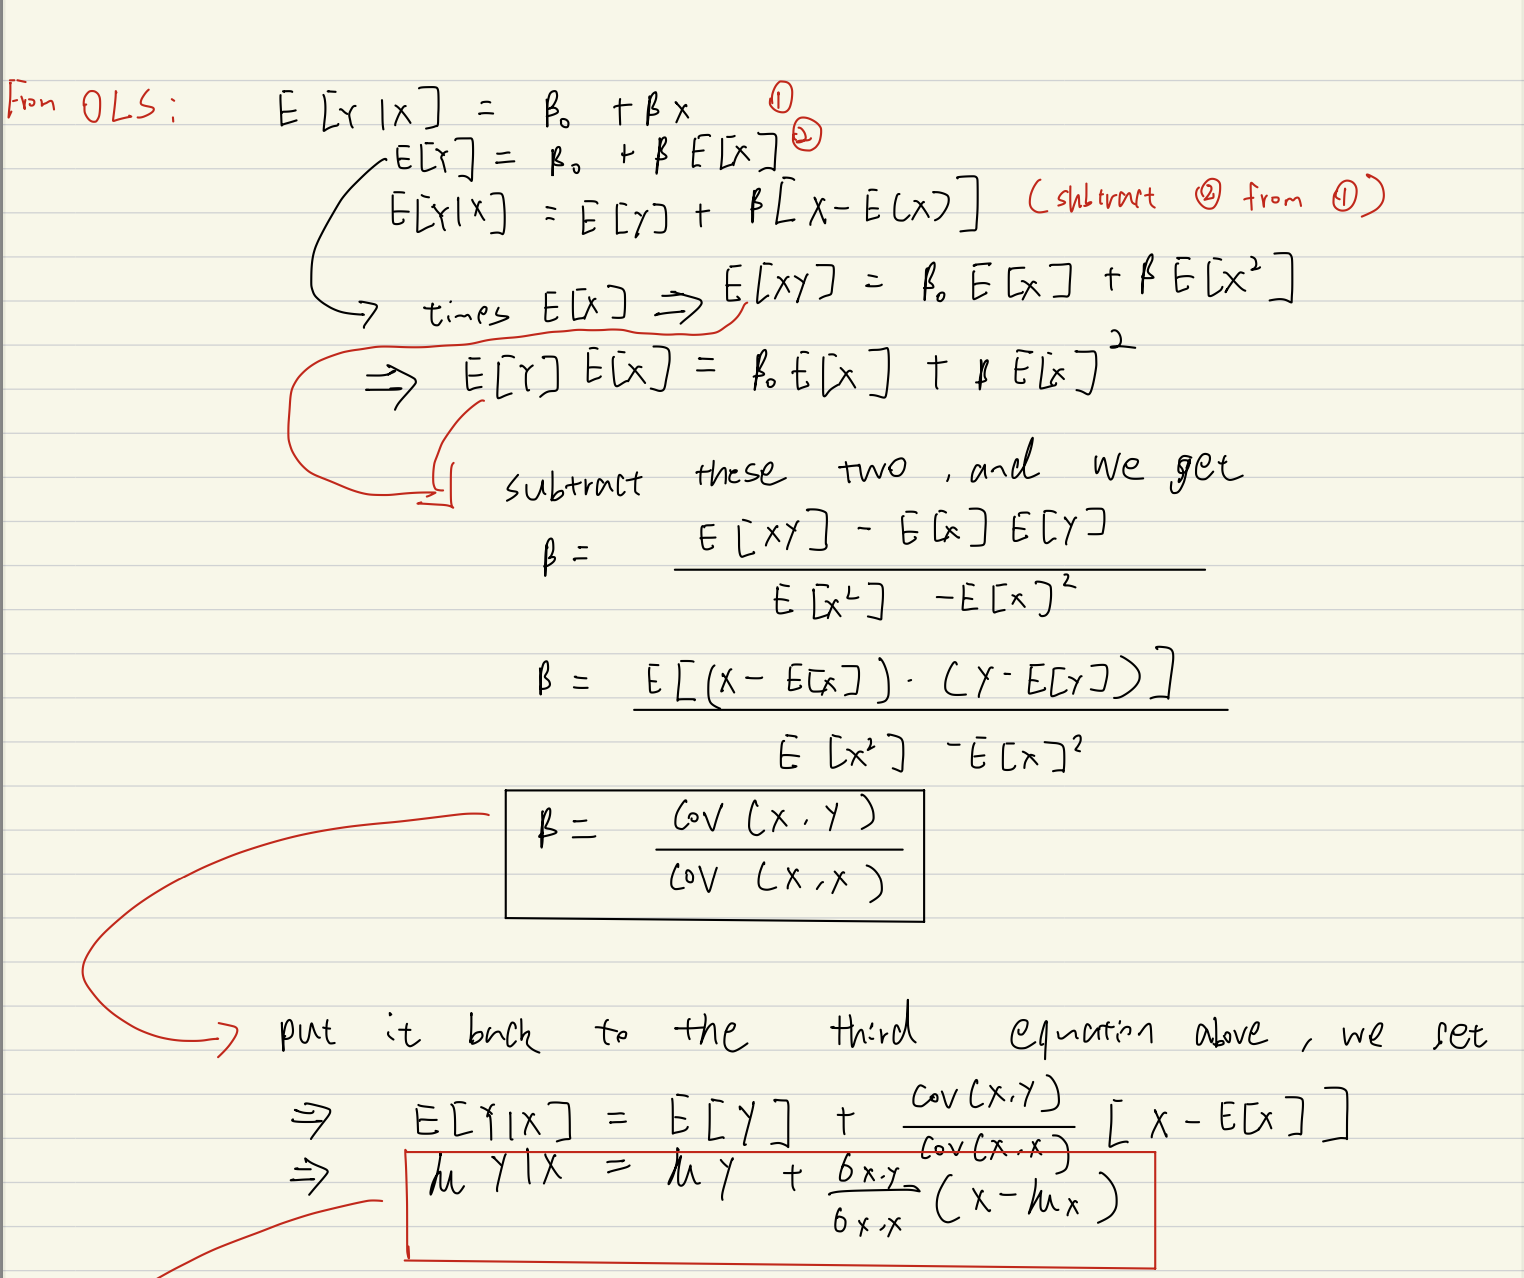 From OLS: E[Y|X] = β₀ + βx ①
E[Y] = β₀ + β E[X] ②
E[Y|X] = E[Y] + β[X-E(X)] (subtract ② from ①)
times E[X] ⇒ E[XY] = β₀ E[X] + β E[X²]
⇒ E[Y] E[X] = β₀ E[X] + β E[X]²
subtract these two, and we get
β = (E[XY] - E[X] E[Y]) / (E[X²] - E[X]²)
β = E[(X-E[X])·(Y-E[Y])] / (E[X²] - E[X]²)
β = Cov(X,Y) / Cov(X,X)
put it back to the third equation above, we set
⇒ E[Y|X] = E[Y] + Cov(X,Y) / Cov(X,X) [X-E[X]]
⇒ μ Y|X = μ Y + σx,y / σx,x (X-μx)